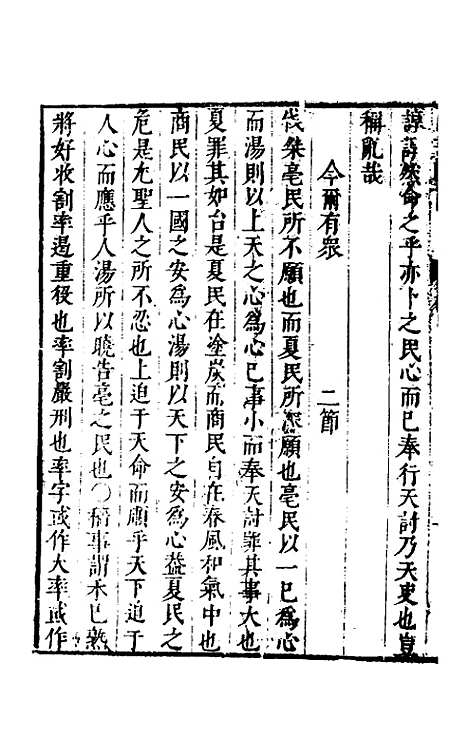 諄諄然命之乎亦卜之民心而已奉行天討乃天吏也豈
稱亂哉
今爾有衆　二節
伐桀亳民所不願也而夏民所深願也亳民以一己爲心
而湯則以上天之心爲心己事小而奉天討罪其事大也
夏罪其如台是夏民在塗炭而商民自在春風和氣中也
商民以一國之安爲心湯則以天下之安爲心葢夏民之
危是尤聖人之所不忍也上迫于天命而願乎天下迫于
人心而應乎人湯所以曉告亳之民也〇穡事謂禾已熟
將好收割率遏重役也率割嚴刑也率字或作大率或作